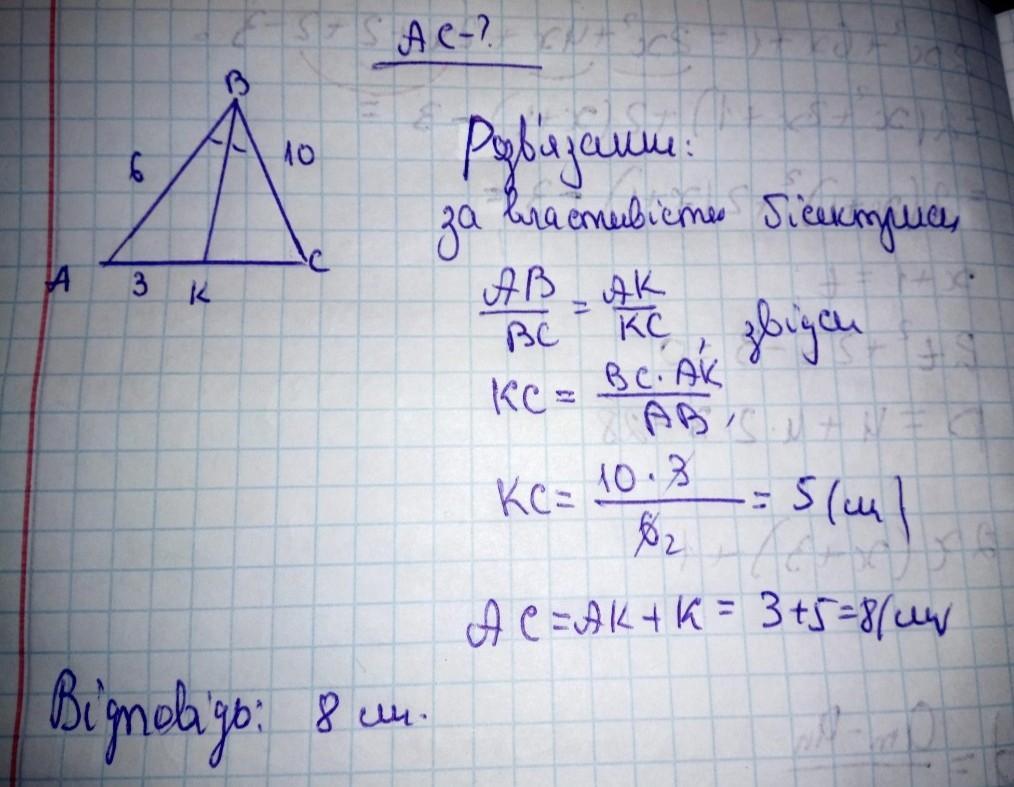 AC-?
B
6
10
A
3
K
C
Розв'язання:
за властивістю бісектриси
AB/BC = AK/KC, звідси
KC = BC·AK/AB,
KC = 10·3/6 2 = 5 (см)
AC = AK + K = 3+5=8(см)
Відповідь: 8 см.